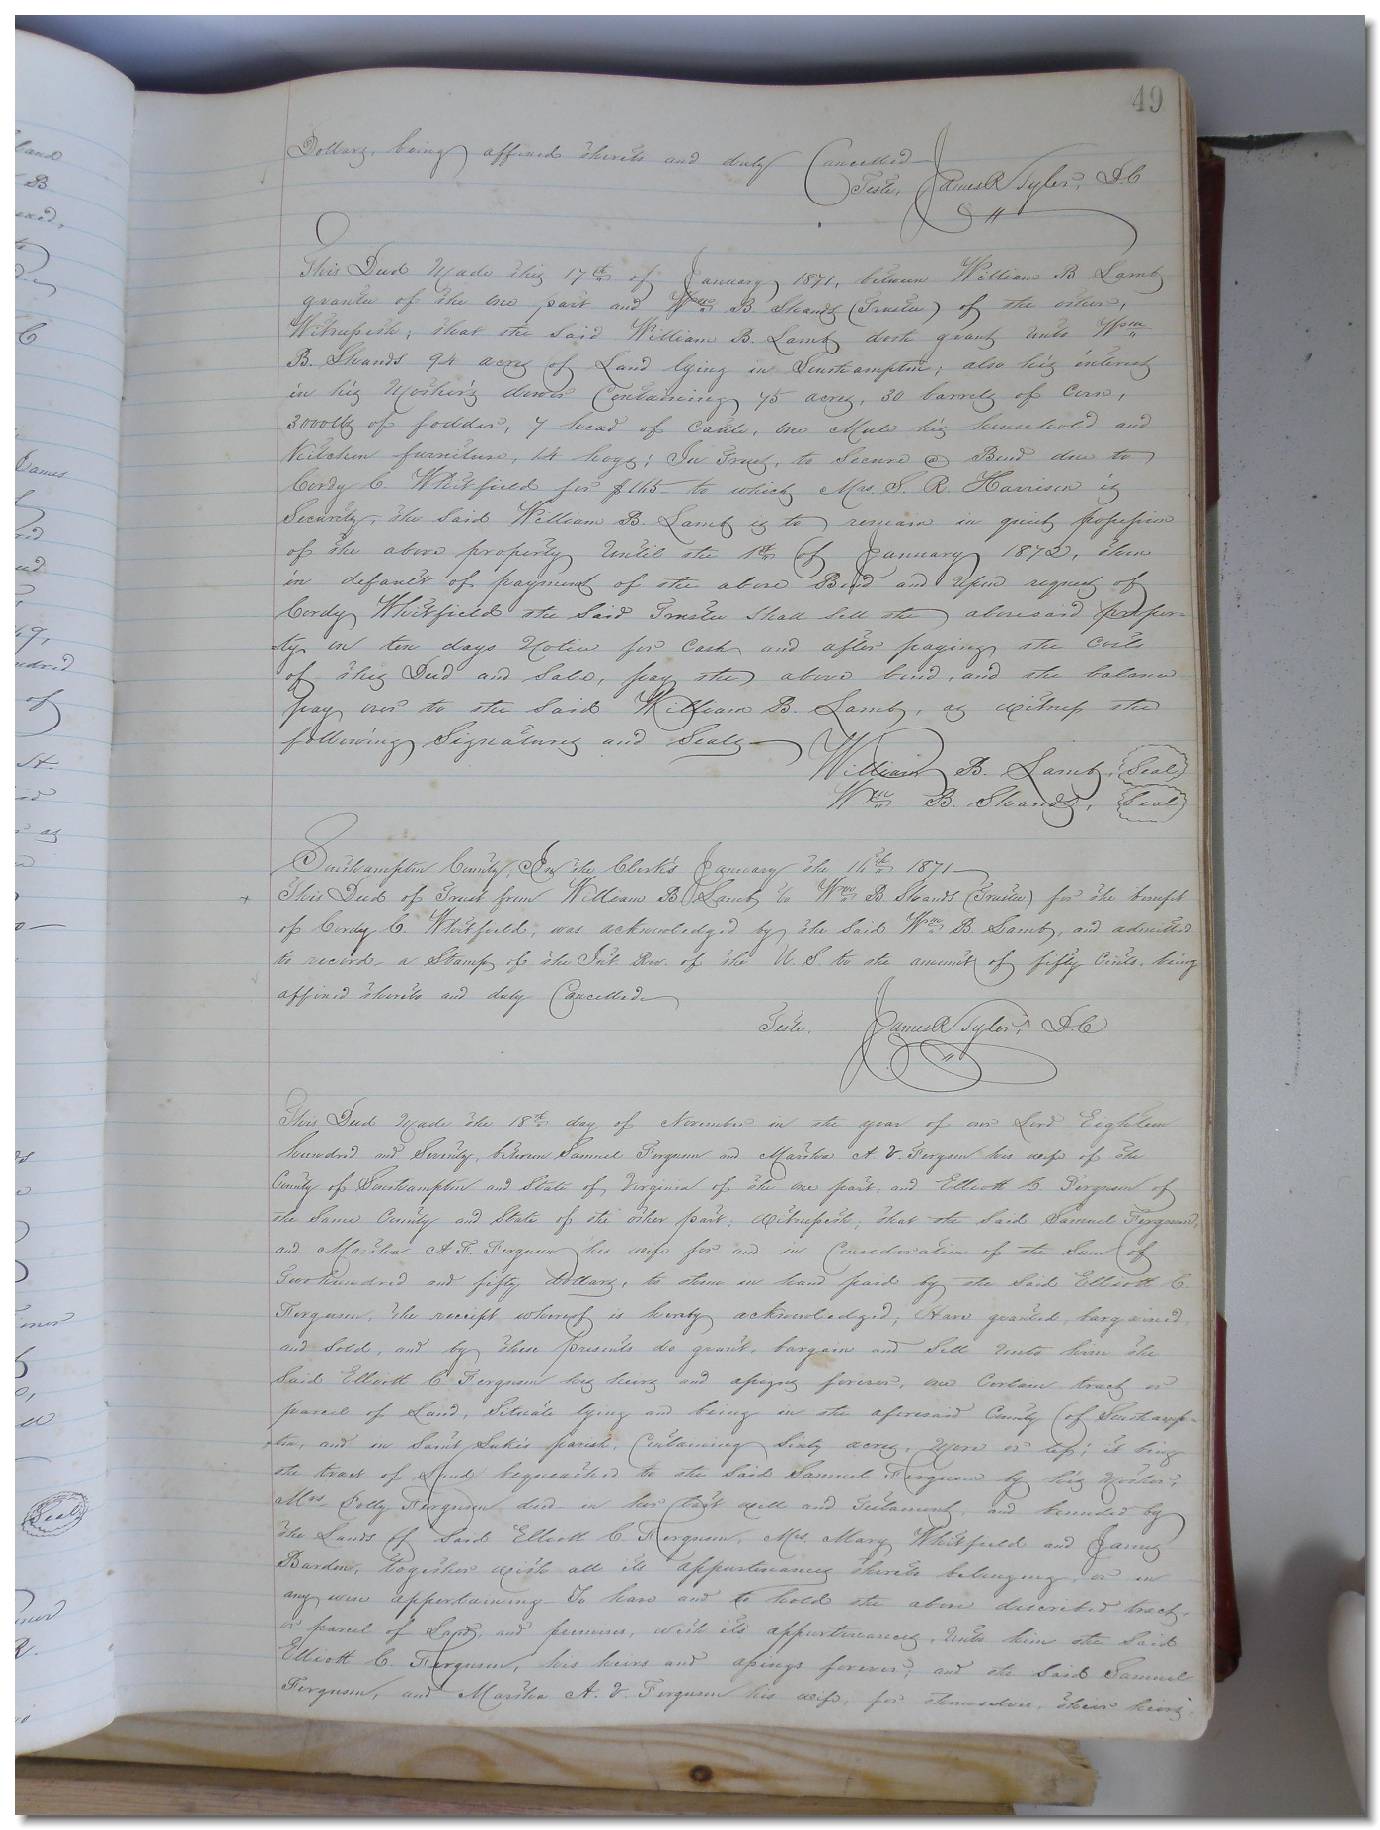 49
Dollars, being affixed thereto and duly Cancelled
Teste, James R Tyler, D.C
This Deed Made this 17th of January 1871, between William B Lamb
grantor of the one part and Wm B Shands (Trustee) of the other,
Witnesseth; that the said William B. Lamb doth grant unto Wm
B. Shands 94 acres of Land lying in Southampton; also his interest
in his Mother's dower Containing 75 acres, 30 barrels of Corn,
3000 lbs of fodder, 7 head of Cattle, one Mule his household and
Kitchen furniture, 14 hogs; In Trust, to Secure a Bond due to
Cordy C. Whitfield for $165- to which Mrs. S. R. Harrison is
Security, the said William B. Lamb is to remain in quiet possession
of the above property Until the 1st of January 1872, then
in default of payment of the above Bond and Upon request of
Cordy Whitfield the Said Trustee Shall Sell the aforesaid proper-
ty, on ten days Notice for Cash and after paying the Costs
of this Deed and Sale, pay the above bond, and the balance
pay over to the Said William B. Lamb, as witness the
following Signatures and Seals
William B. Lamb, Seal
Wm B. Shands, Seal
Southampton County, In the Clerk's January the 1871
This Deed of Trust from William B Lamb to Wm B Shands (Trustee) for the benefit
of Cordy C. Whitfield, was acknowledged by the Said Wm B Lamb, and admitted
to record- a Stamp of the Int. Rev. of the U. S. to the amount of fifty Cents, being
affixed thereto and duly Cancelled
Teste, James R Tyler, D.C
This Deed Made the 18th day of November in the year of our Lord Eighteen
hundred and Seventy, between Samuel Ferguson and Martha A V. Ferguson his wife of the
County of Southampton and State of Virginia of the one part, and Elliott C Ferguson of
the Same County and State of the other part; Witnesseth; that the Said Samuel Ferguson,
and Martha A V. Ferguson his wife for and in Consideration of the Sum of
Two hundred and fifty dollars, to them in hand paid by the Said Elliott C.
Ferguson, the receipt whereof is hereby acknowledged; Have granted, bargained,
and Sold, and by these presents do grant, bargain and Sell Unto him the
Said Elliott C Ferguson his heirs and assigns forever, one Certain tract or
parcel of Land, Situate lying and being in the aforesaid County of Southamp-
ton, and in Saint Luke's parish, Containing Sixty acres, More or less; it being
the tract of Land bequeathed to the Said Samuel Ferguson by his Mother,
Mrs Polly Ferguson decd- in her last will and Testament, and bounded by
the Lands of Said Elliott C. Ferguson, Mrs. Mary Whitfield and James
Barden, together with all its appurtenances thereto belonging, or in
any wise appertaining- To have and to hold the above described tract,
or parcel of Land, and premises, with its appurtenances, Unto him the Said
Elliott C. Ferguson, his heirs and assings forever; and the Said Samuel
Ferguson, and Martha A. V. Ferguson his wife, for themselves, their heirs,